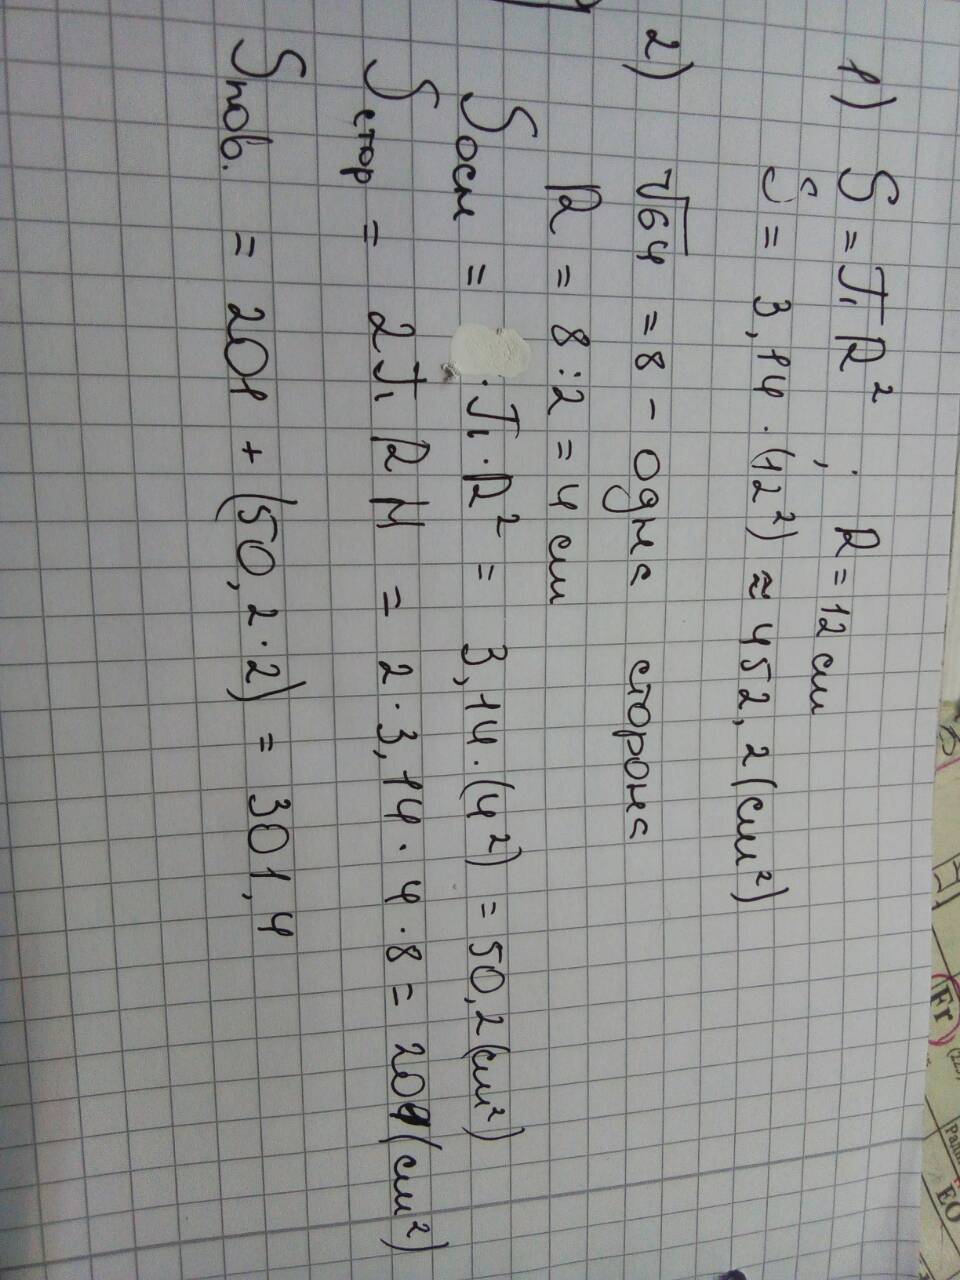 1) S = πR² ; R = 12 см
S = 3,14 · (12²) ≈ 452,2 (см²)
2) √64 = 8 - одна сторона
R = 8 : 2 = 4 см
Sосн = · π · R² = 3,14 · (4²) = 50,2 (см²)
Sстор = 2πRH = 2 · 3,14 · 4 · 8 = 201 (см²)
Sпов. = 201 + (50,2 · 2) = 301,4
Fr
(223)
EO